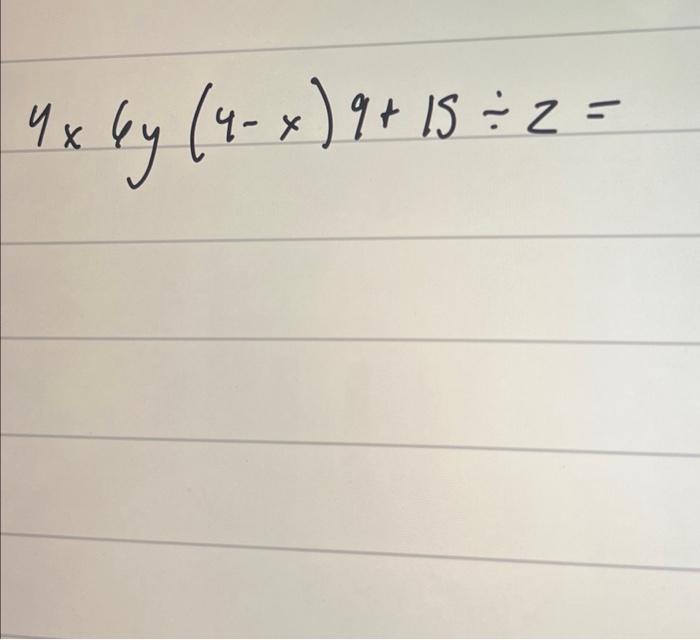 4x 6y (4-x) 9+ 15 ÷ 2 =